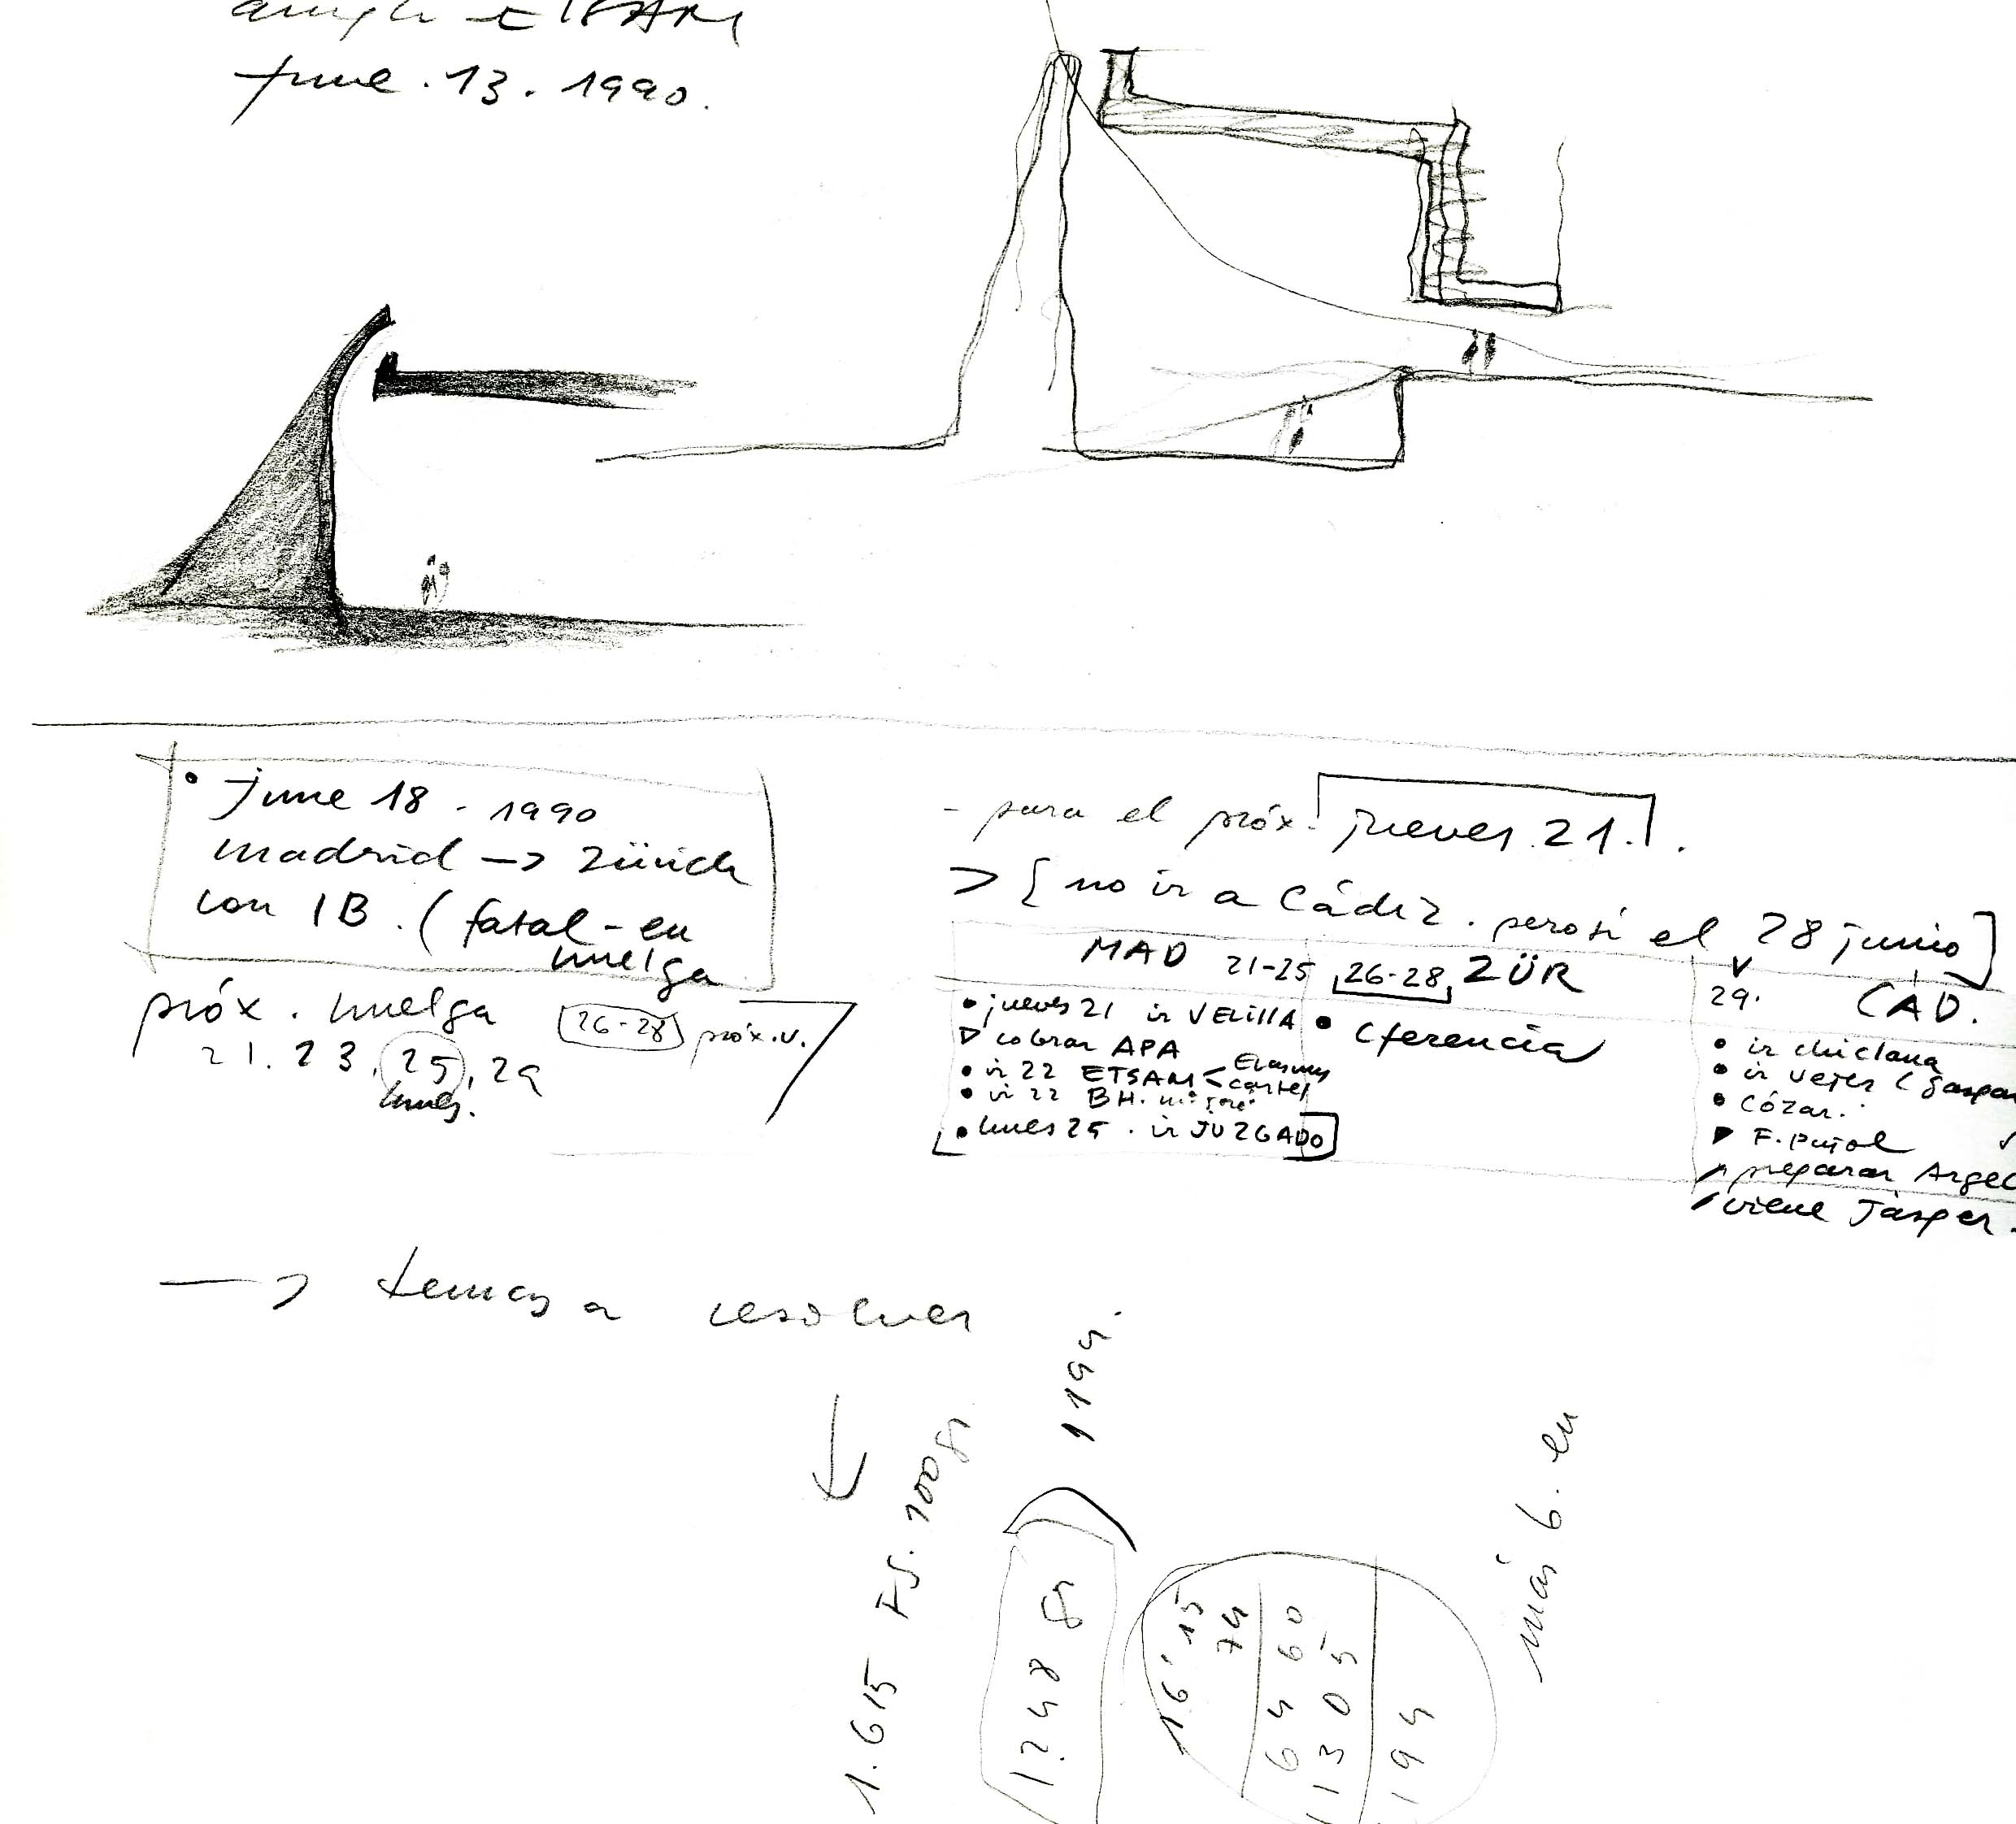 ETSAM
June.13.1990.
• June 18 - 1990
madrid -> Zürich
con IB. (fatal-en
huelga
próx. huelga
26-28 próx.v.
21. 23. 25. 29
lunes.
- para el próx. jueves 21.
> [no ir a Cádiz. pero sí el 28 junio]
MAD 21-25
• jueves 21 ir VELILLA
▷ cobrar APA
• ir 22 ETSAM < Erasmus
cartel
• ir 22 BH.
• lunes 25. ir JUZGADO
26-28 ZÜR
• Cferencia
29. CAD.
• ir chiclana
• ir vejer (gaspar
• Cózar.
▶ F. Pujol
preparar Argel
viene Jasper.
-> temas a resolver
1.615 FS. 100 gr
1248 gr
1194.
16'15
74
6460
1305
194
más 6. en